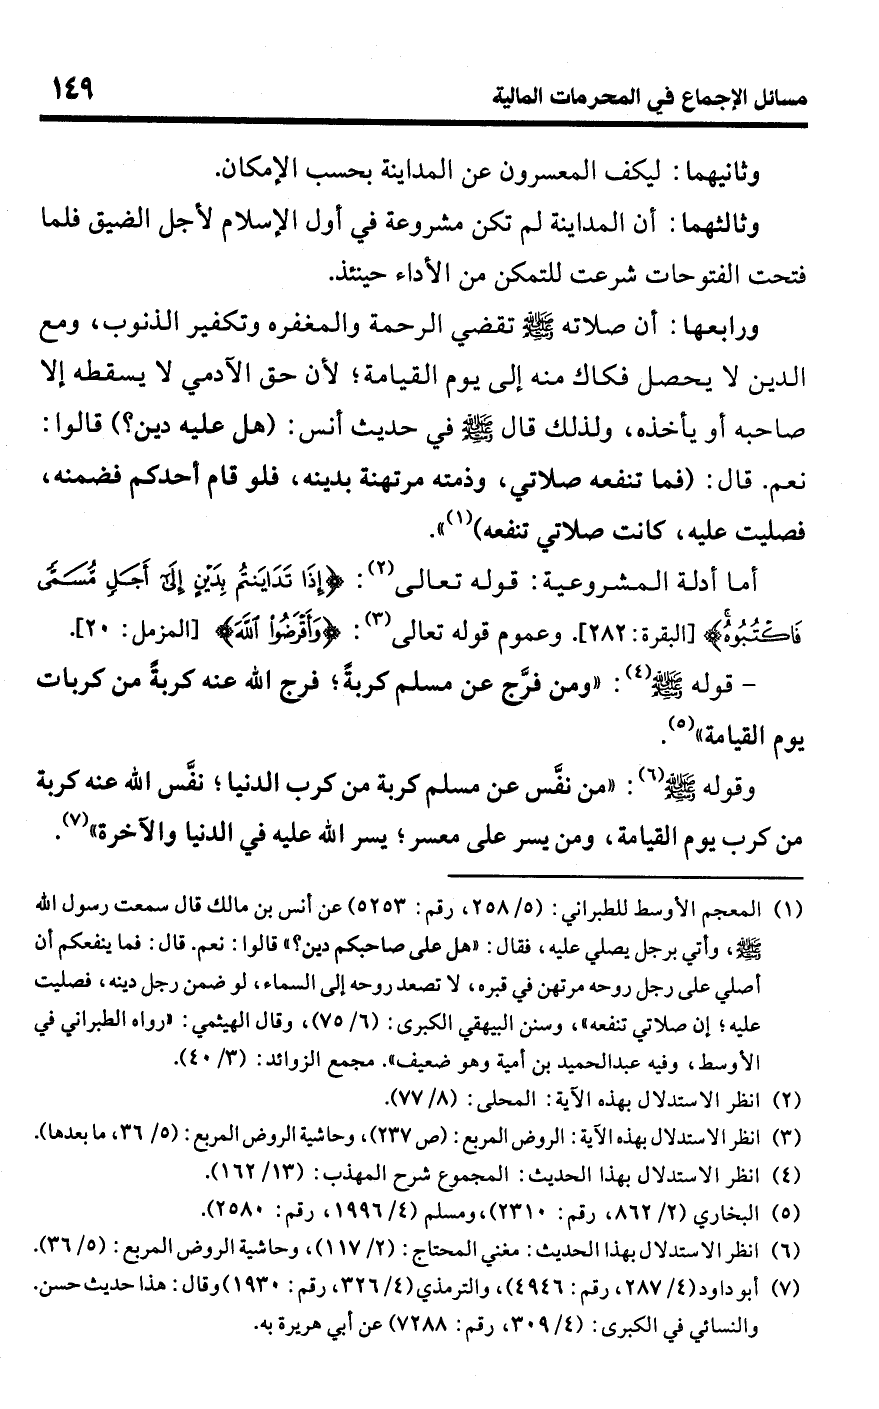 مسائل الإجماع في المحرمات المالية ١٤٩
وثانيهما: ليكف المعسرون عن المداينة بحسب الإمكان.
وثالثهما: أن المداينة لم تكن مشروعة في أول الإسلام لأجل الضيق فلما
فتحت الفتوحات شرعت للتمكن من الأداء حينئذ.
ورابعها: أن صلاته ﷺ تقضي الرحمة والمغفره وتكفير الذنوب، ومع
الدين لا يحصل فكاك منه إلى يوم القيامة؛ لأن حق الآدمي لا يسقطه إلا
صاحبه أو يأخذه، ولذلك قال ﷺ في حديث أنس: (هل عليه دين؟) قالوا:
نعم. قال: (فما تنفعه صلاتي، وذمته مرتهنة بدينه، فلو قام أحدكم فضمنه،
فصليت عليه، كانت صلاتي تنفعه)(١)».
أما أدلة المشروعية: قوله تعالى(٢): ﴿إِذَا تَدَايَنتُم بِدَيْنٍ إِلَىٰ أَجَلٍ مُّسَمًّى
فَاكْتُبُوهُ﴾ [البقرة: ٢٨٢]. وعموم قوله تعالى(٣): ﴿وَأَقْرِضُوا۟ ٱللَّهَ﴾ [المزمل: ٢٠].
- قوله ﷺ(٤): «ومن فرَّج عن مسلم كربةً؛ فرج الله عنه كربةً من كربات
يوم القيامة»(٥).
وقوله ﷺ(٦): «من نفَّس عن مسلم كربة من كرب الدنيا؛ نفَّس الله عنه كربة
من كرب يوم القيامة، ومن يسر على معسر؛ يسر الله عليه في الدنيا والآخرة»(٧).
(١) المعجم الأوسط للطبراني: (٥/ ٢٥٨، رقم: ٥٢٥٣) عن أنس بن مالك قال سمعت رسول الله
ﷺ، وأتي برجل يصلي عليه، فقال: «هل على صاحبكم دين؟» قالوا: نعم. قال: فما ينفعكم أن
أصلي على رجل روحه مرتهن في قبره، لا تصعد روحه إلى السماء، لو ضمن رجل دينه، فصليت
عليه؛ إن صلاتي تنفعه»، وسنن البيهقي الكبرى: (٦/ ٧٥)، وقال الهيثمي: «رواه الطبراني في
الأوسط، وفيه عبدالحميد بن أمية وهو ضعيف». مجمع الزوائد: (٣/ ٤٠).
(٢) انظر الاستدلال بهذه الآية: المحلى: (٨/ ٧٧).
(٣) انظر الاستدلال بهذه الآية: الروض المربع: (ص ٢٣٧)، وحاشية الروض المربع: (٥/ ٣٦، ما بعدها).
(٤) انظر الاستدلال بهذا الحديث: المجموع شرح المهذب: (١٣/ ١٦٢).
(٥) البخاري (٢/ ٨٦٢، رقم: ٢٣١٠)، ومسلم (٤/ ١٩٩٦، رقم: ٢٥٨٠).
(٦) انظر الاستدلال بهذا الحديث: مغني المحتاج: (٢/ ١١٧)، وحاشية الروض المربع: (٥/ ٣٦).
(٧) أبو داود (٤/ ٢٨٧، رقم: ٤٩٤٦)، والترمذي (٤/ ٣٢٦، رقم: ١٩٣٠) وقال: هذا حديث حسن.
والنسائي في الكبرى: (٤/ ٣٠٩، رقم: ٧٢٨٨) عن أبي هريرة به.